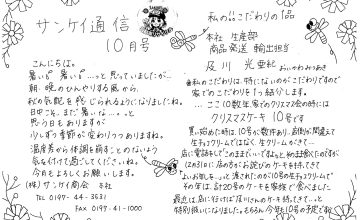 サンケイ通信
10月号
こんにちは。
暑い!! 暑い!! …っと 思っていましたが…
朝、晩のひんやりする風から、
秋の気配を感じられるようになりましたね。
日中こそ、まだ暑いな…っと
思う日もありますが
少しずつ季節が変わりつつありますね。
温度差から体調を崩すことのないよう
気を付けて過ごしてくださいね。
今月もよろしくお願いします。
(株)サンケイ商会
TEL 0197-44-3631
FAX 0197-41-1000
私の!!こだわりの1品
本社 生産部
商品発送 輸出担当
及川 光亜紀
おいかわ みつあき
私のこだわりは、特にないのがこだわりですので
家でのこだわりを1つ紹介します。
…ここ10数年、家でのクリスマス会の時には
クリスマスケーキ 10号です
買い始めた時は、10号が数件あり、
生チョコクリームではなく、生クリームがきて…
その年は、計20号のケーキを家族で食べました